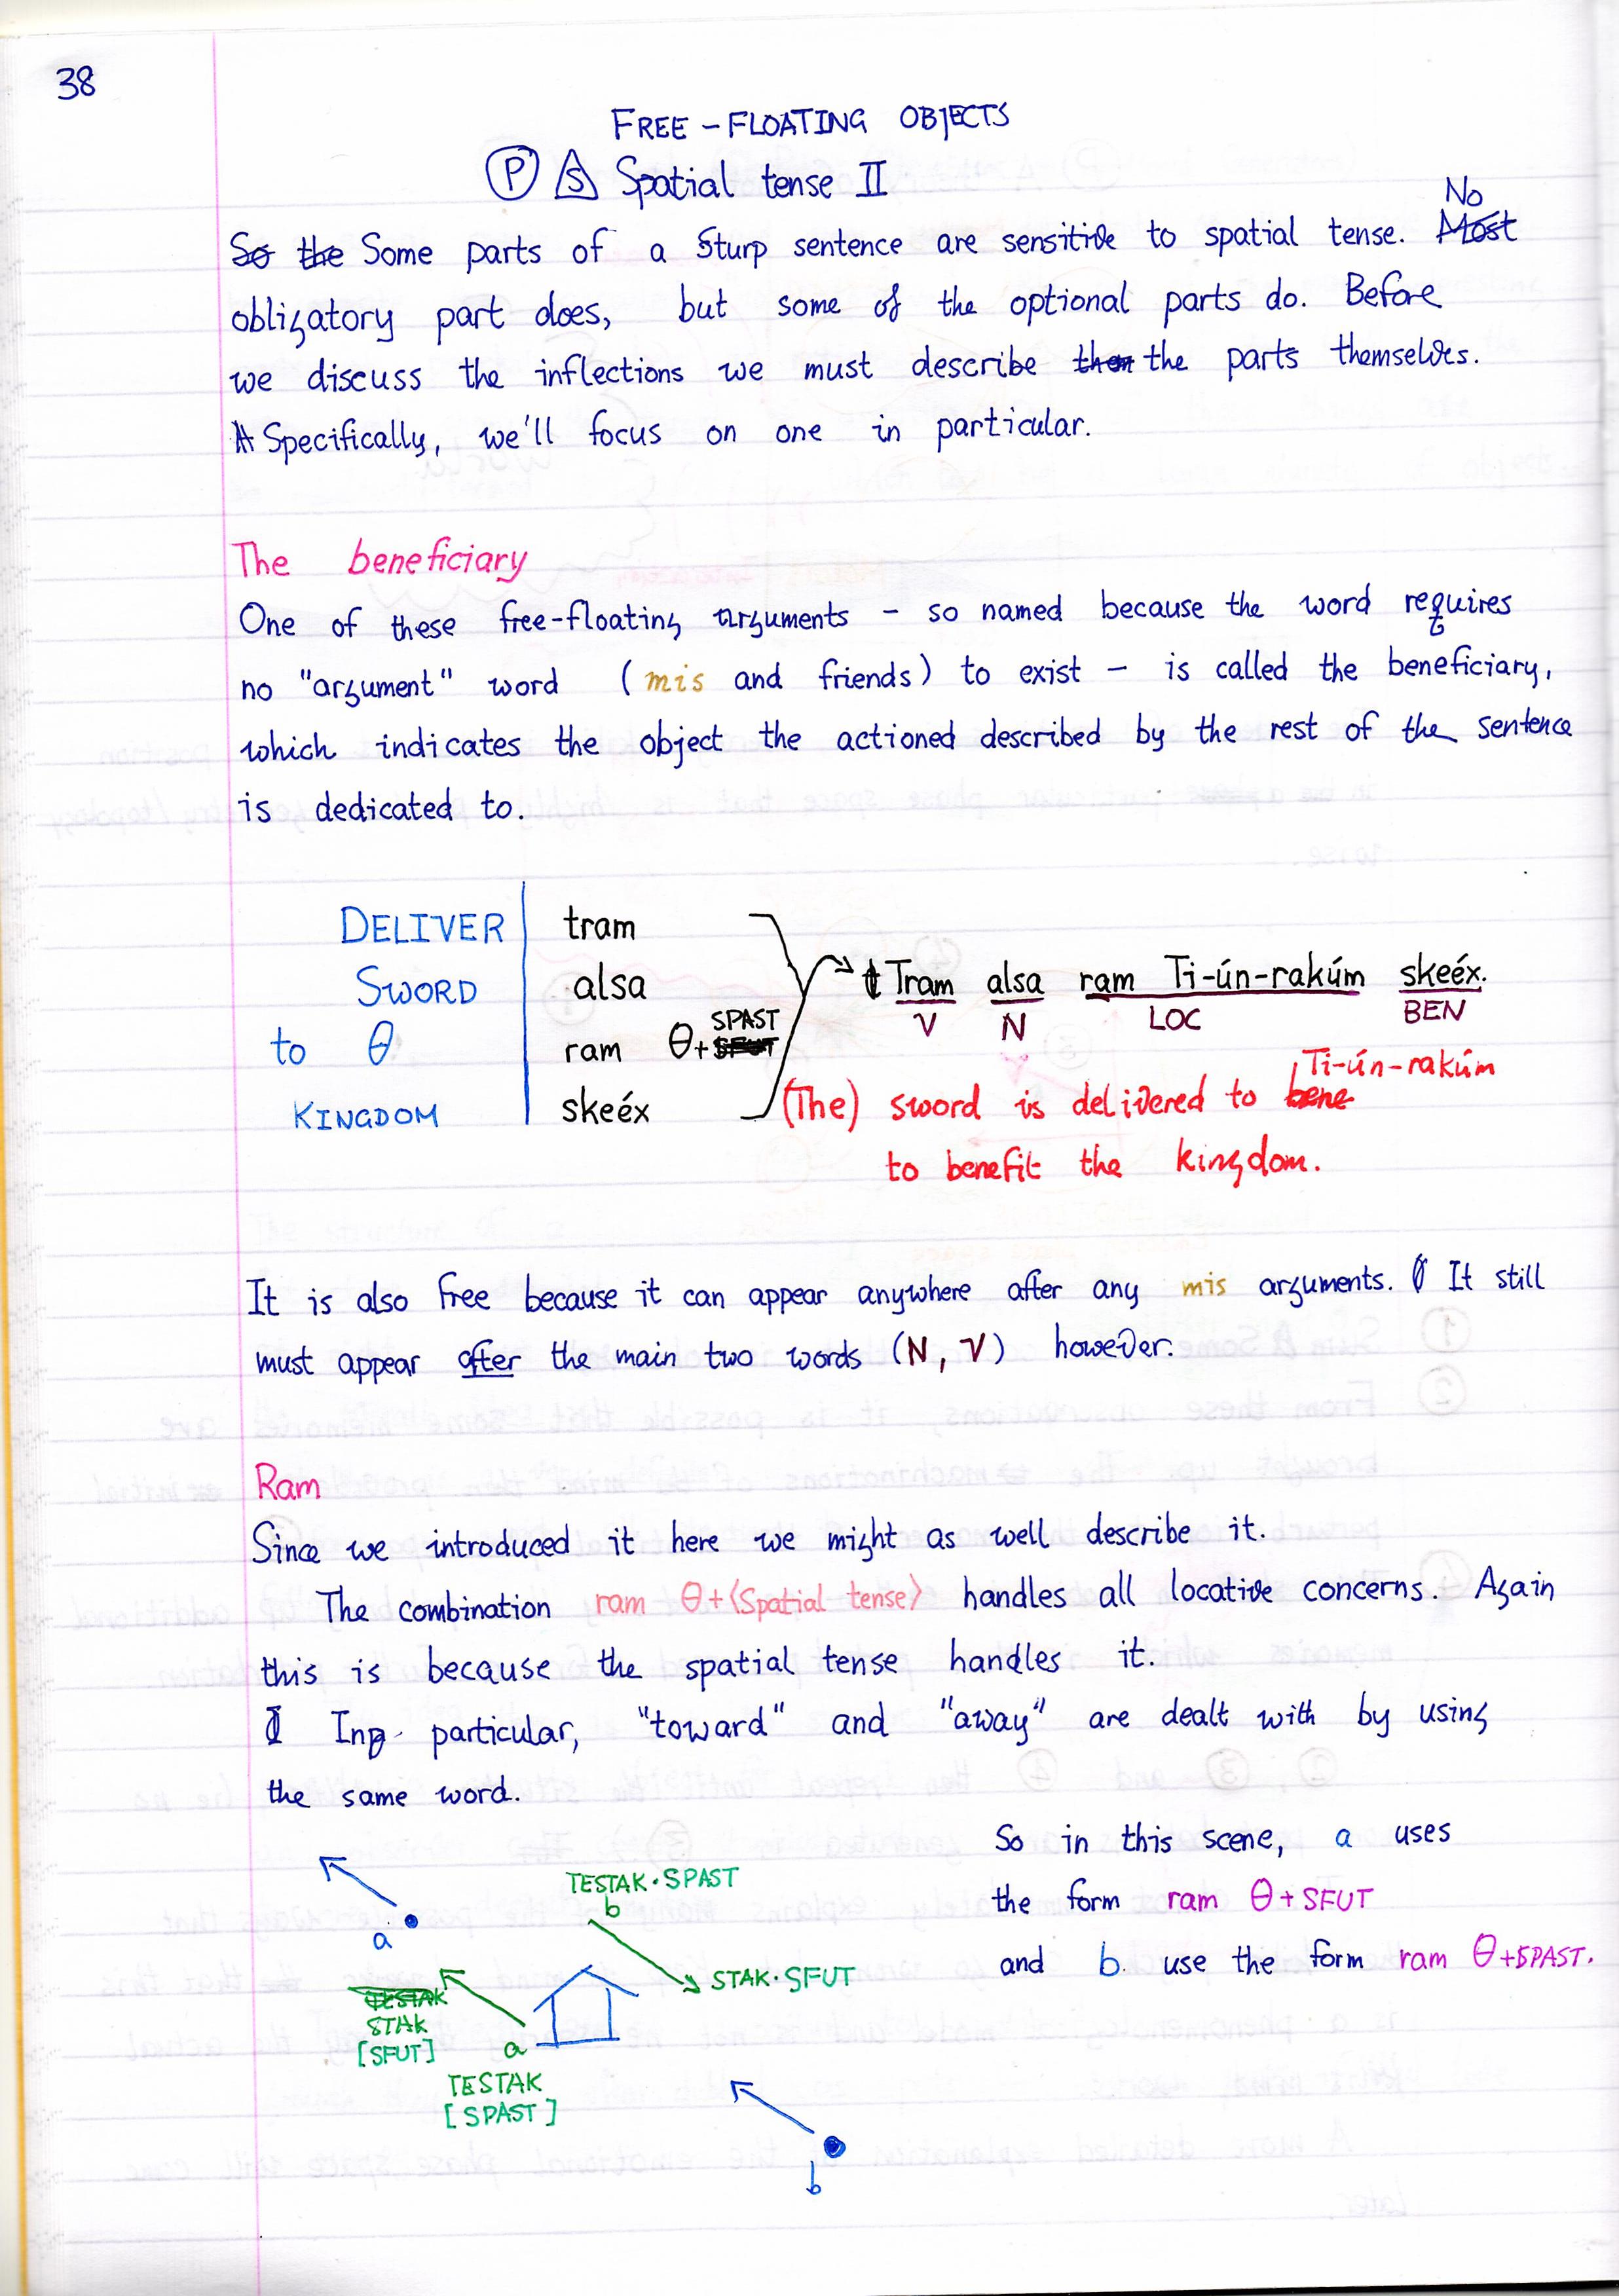 38
FREE-FLOATING OBJECTS
P S Spatial tense II
So the Some parts of a Sturp sentence are sensitive to spatial tense. Most No
obligatory part does, but some of the optional parts do. Before
we discuss the inflections we must describe them the parts themselves.
A Specifically, we'll focus on one in particular.
The beneficiary
One of these free-floating arguments - so named because the word requires
no "argument" word (mis and friends) to exist - is called the beneficiary,
which indicates the object the actioned described by the rest of the sentence
is dedicated to.
DELIVER tram
SWORD alsa
to θ ram θ+SFUT SPAST
KINGDOM skeéx
t Tram alsa ram Ti-ún-rakúm skeéx.
V N LOC BEN
(The) sword is delivered to bene Ti-ún-rakúm
to benefit the kingdom.
It is also free because it can appear anywhere after any mis arguments. It still
must appear after the main two words (N, V) however.
Ram
Since we introduced it here we might as well describe it.
The combination ram θ+⟨Spatial tense⟩ handles all locative concerns. Again
this is because the spatial tense handles it.
I In particular, "toward" and "away" are dealt with by using
the same word.
So in this scene, a uses
the form ram θ+SFUT
and b. use the form ram θ+SPAST.
a
TESTAK·SPAST
b
STAK·SFUT
TESTAK
STAK
[SFUT]
a
TESTAK
[SPAST]
b